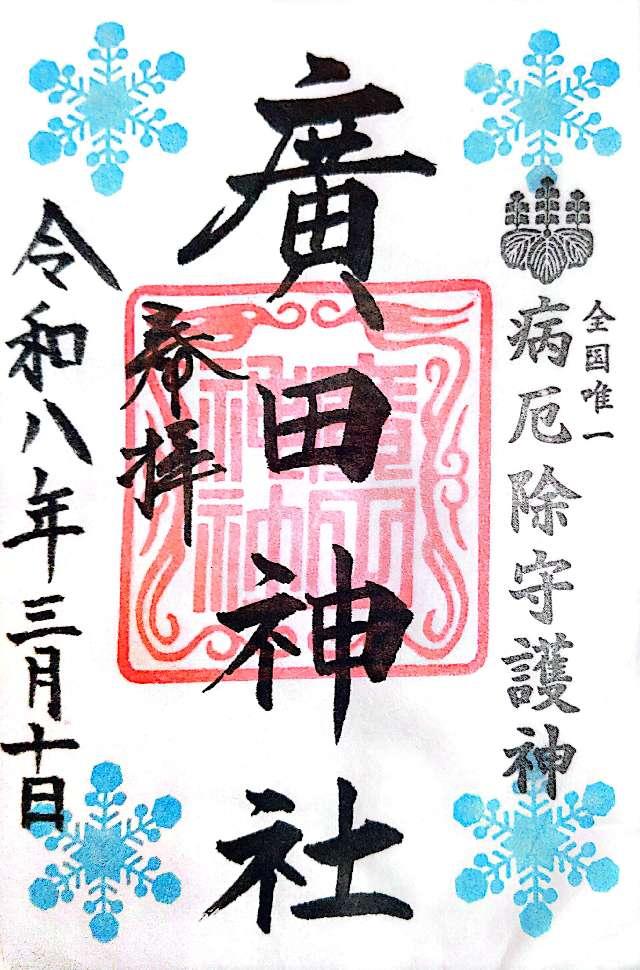 全国唯一
病厄除守護神
廣田神社
奉拝
令和八年三月十日